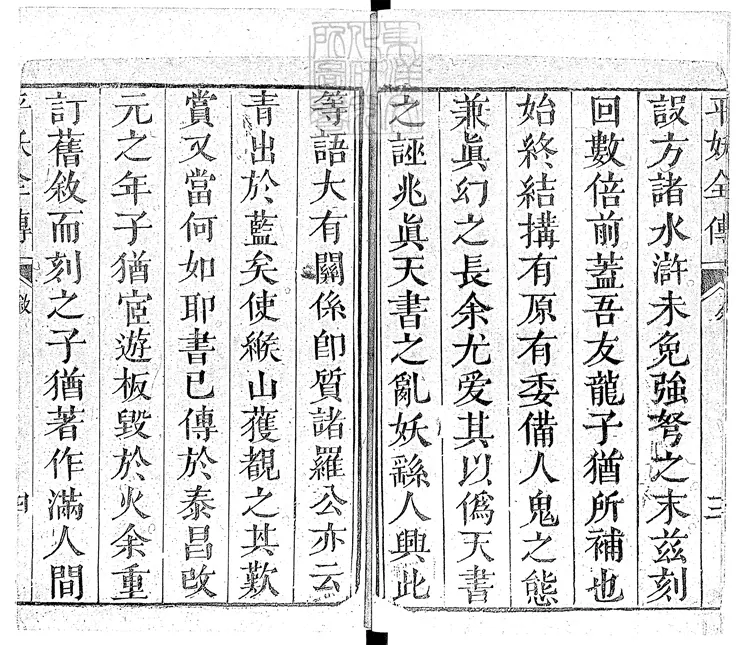 平妖全傳
三
設方諸水滸未免強弩之末茲刻
回數倍前蓋吾友龍子猶所補也
始終結搆有原有委備人鬼之態
兼眞幻之長余尤爱其以僞天書
之誣兆眞天書之亂妖繇人興此
等語大有關係卽質諸羅公亦云
青出於藍矣使緱山獲覩之其歎
賞又當何如耶書已傳於泰昌改
元之年子猶宦遊板毀於火余重
訂舊敘而刻之子猶著作滿人間
平妖全傳
敘
四